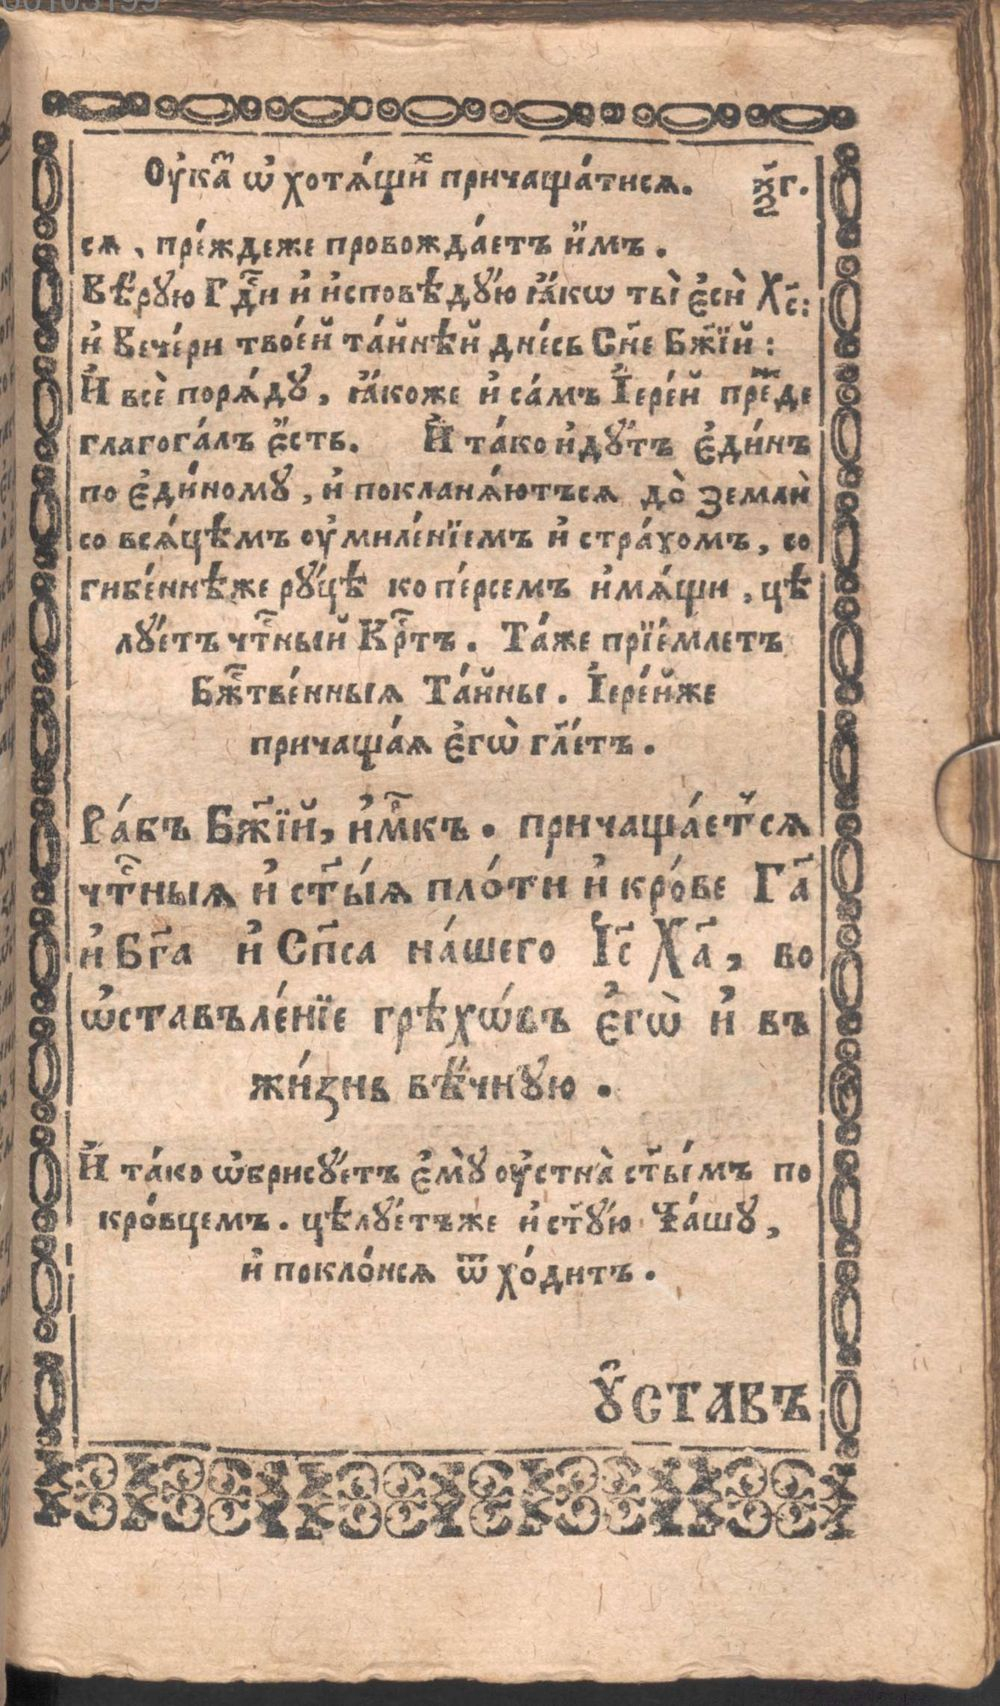 Оу҆каⷮ ѡ҆ хотѧ́щиⷯ причаща́тисѧ. к҃г.
сѧ, пре́ждеже провожда́етъ и҆́мъ.
Вѣ́рую Гдⷭ҇и и҆ и҆сповѣ́дꙋю ꙗ҆́кѡ ты̀ є҆сѝ Хⷭ҇:
и҆ Вече́ри твое́й та́йнѣй дне́сь Сн҃е Бж҃їй:
И҆ всѐ порѧ́дꙋ, ꙗ҆́коже и҆ са́мъ І҆ере́й преⷤде
глагога́лъ є҆́сть. И҆ та́ко и҆дꙋ́тъ є҆ди́нъ
по є҆ди́номꙋ, и҆ покланѧ́ютъсѧ до̀ землѝ
со всѧ́цѣмъ оу҆миле́нїемъ и҆ стра́хомъ, со
гибе́ннѣже рꙋ́цѣ ко пе́рсемъ и҆мѧ́щи, цѣ
лꙋ́етъ чⷭ҇тный Крⷭ҇тъ. Та́же прїе́млетъ
Бжⷭ҇тве́нныѧ Та́йны. І҆ере́йже
причаща́ѧ є҆гѡ̀ гл҃етъ.
Ра́бъ Бж҃їй, и҆мⷬ҇къ. причаща́етⸯсѧ
чⷭ҇тныѧ и҆ ст҃ы́ѧ пло́ти и҆ кро́ве Гⷭ҇а
и҆ Бг҃а и҆ Сп҃са на́шего І҆с҃ Хⷭ҇а, во
ѡ҆ставъле́нїе грѣхѡ́въ є҆гѡ̀ и҆ въ
жи́знь вѣ́чнꙋю.
И҆ та́ко ѡ҆брисꙋ́етъ є҆мꙋ̀ оу҆стна̀ ст҃ы́мъ по
кро́вцемъ. цѣлꙋ́етъже и҆ ст҃ꙋ́ю Ча́шꙋ,
и҆ покло́нсѧ ѿхо́дитъ.
Ꙋ҆СТАВЪ